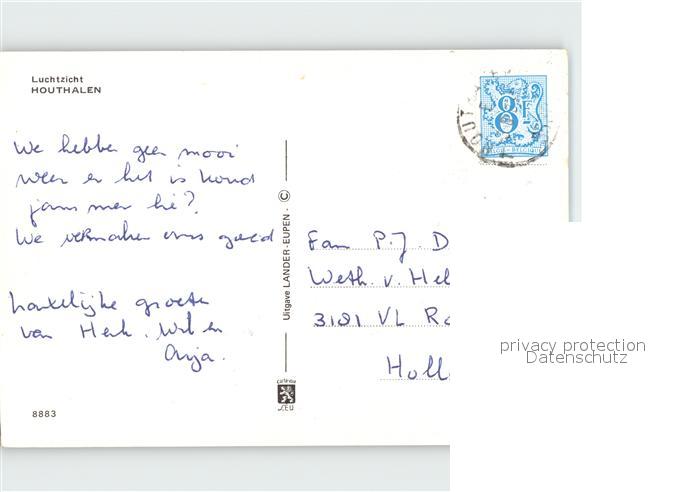 Luchtzicht
HOUTHALEN
We hebben geen mooi
weer en het is koud
jammer hè?
We vermaken ons goed
hartelijke groeten
van Henk. Wil en
Anja.
8883
Uitgave LANDER-EUPEN - ©
8F
BELGIE-BELGIQUE
Fam P.J. D
Weth. v. Hel
3181 VL Ro
Holl
privacy protection
Datenschutz